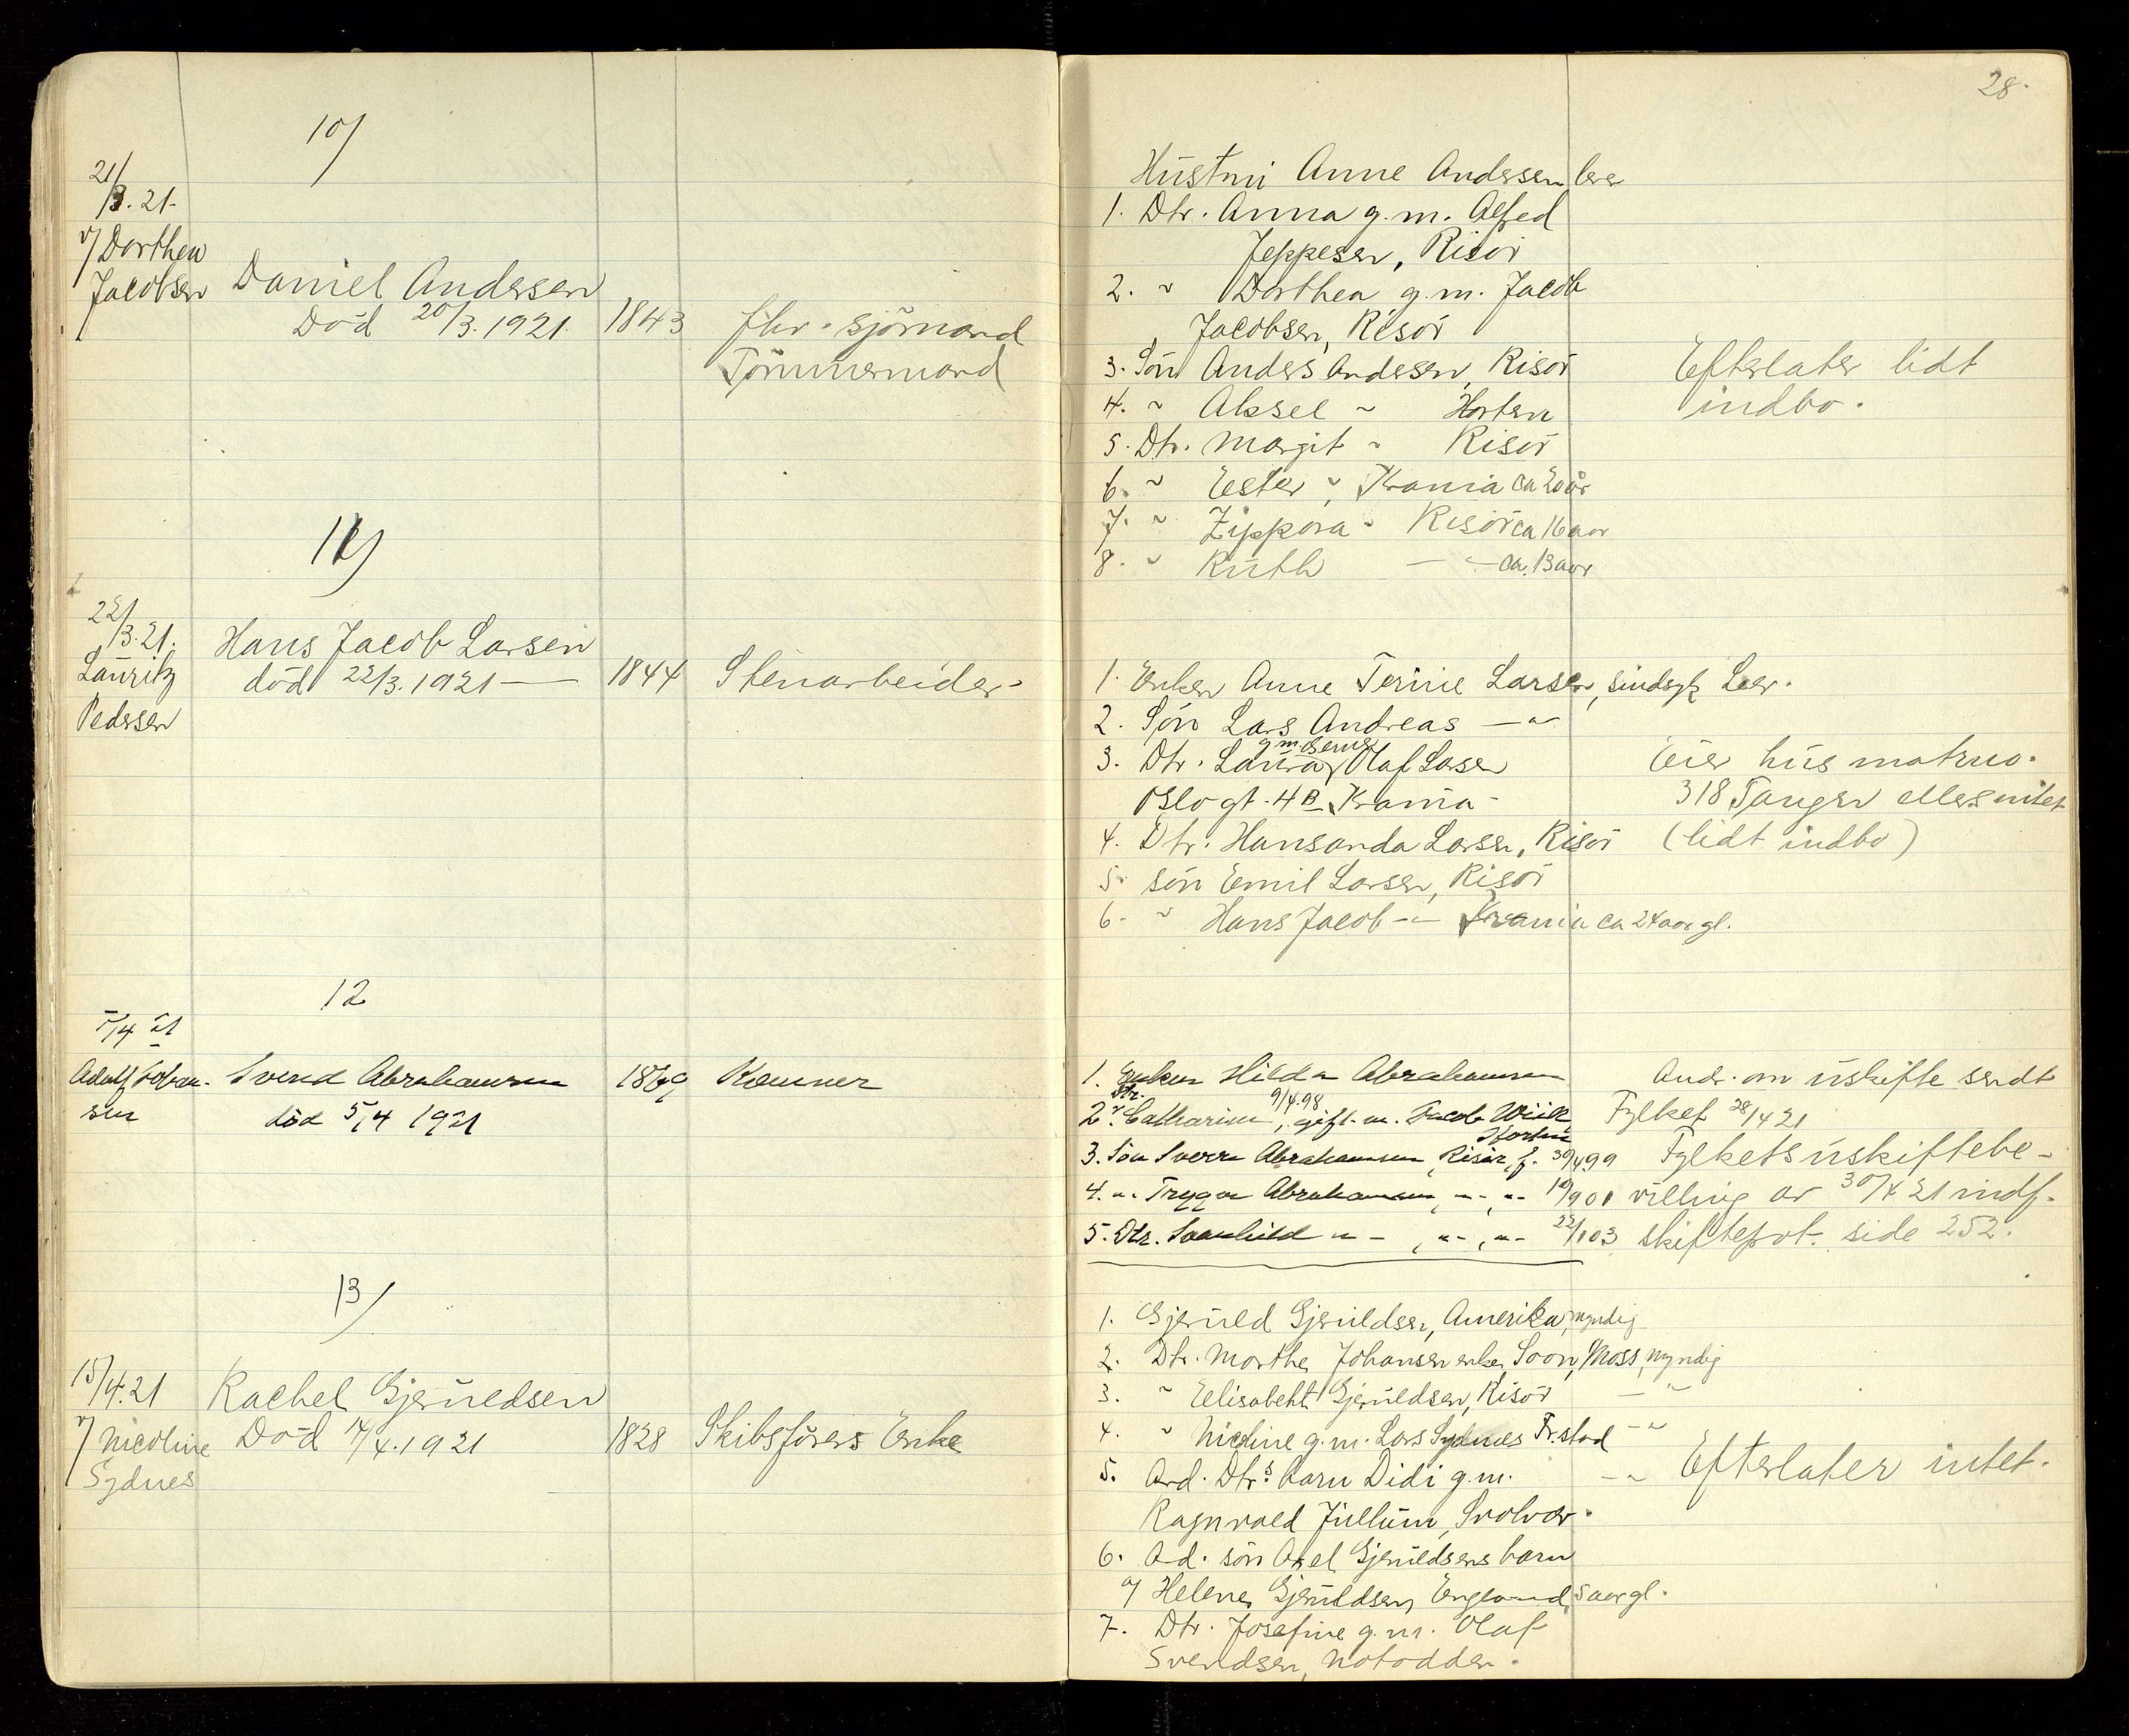 28.
10)
21/3. 21.
v/ Dorthea
Jacobsen
Daniel Andersen
Död 20/3. 1921.
1843
fhv. sjömand
Tömmermand
Hustru Anne Andersen lever
1. Dtr. Anna g. m. Alfred
Jeppesen, Risör
2. " Dorthea g. m. Jacob
Jacobsen, Risör
3. Sön Anders Andersen, Risör
4. " Aksel " Horten
5. Dtr. Margit " Risör
6. " Ester ", Krania ca 20 år
7. " Zippora " Risör ca 16 aar
8. " Ruth — " — ca. 13 aar
Efterlater lidt
indbo.
11)
22/3. 21.
Lauritz
Pedersen
Hans Jacob Larsen
död 22/3. 1921 —
1844
Stenarbeider
1. Enken Anne Terine Larsen, sindsyk Leer.
2. Sön Lars Andreas — " —
3. Dtr. Laura g. m. Olaf Larsen
Oslogt. 4B Krania
4. Dtr. Hansanda Larsen, Risör
5. sön Emil Larsen, Risör
6. " Hans Jacob — " — Krania ca 24 aar gl.
Eier hus matrno.
318 Tangen ellers intet
(lidt indbo)
12
5/4 21
Adolf Johan-
sen
Svend Abrahamsen
död 5/4 1921
1869
Kæmner
1. Enken Hilda Abrahamsen
2. Dtr. Catharina, 9/4.98 gift. m. Jacob Wiik
Horten
3. Sön Sverre Abrahamsen, Risör, f. 30/4 99
4. " Trygve Abrahamsen, " - , " - 19/9 01
5. Dtr. Svanhild " - , " - , " - 22/1 03
Andr. om uskifte sendt
Fylket 28/4 21
Fylkets uskiftebe-
villing av 30/4 21 indf.
skifteprot. side 252.
13)
15/4. 21
v/ Nicoline
Sydnes
Rachel Gjeruldsen
Död 14/4. 1921
1828
Skibsförers Enke
1. Gjeruld Gjeruldsen, Amerika, myndig
2. Dtr. Marthe Johansen enke, Soon, Moss, myndig
3. " Elisabeht Gjeruldsen, Risör — " —
4. " Nicoline g. m. Lars Sydnes Fr.stad — " —
5. Avd. Dtrs. barn Didi g. m. — " —
Ragnvald Jullum, Svolvær.
6. Avd. sön Axel Gjeruldsens barn
a/ Helene Gjeruldsen, England, 5 aar gl.
7. Dtr. Josefine g. m. Olaf
Svendsen, Notodden.
Efterlater intet.